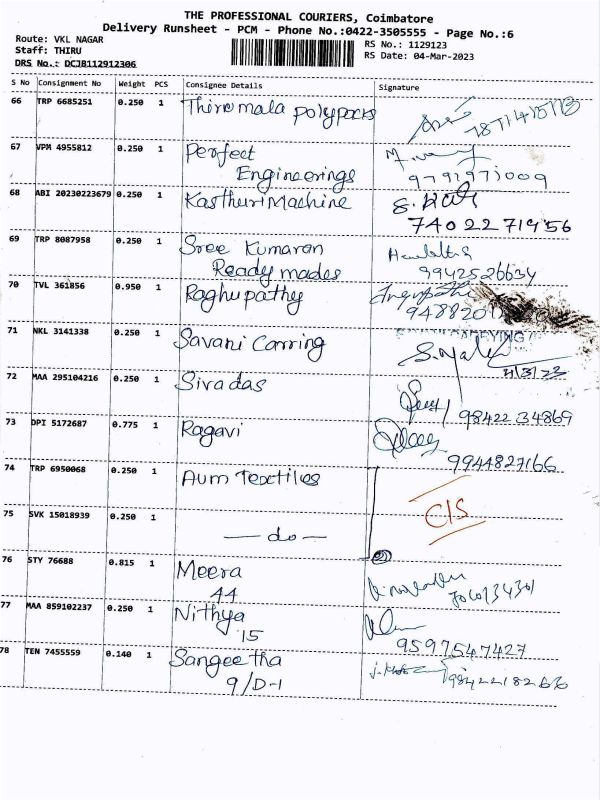 THE PROFESSIONAL COURIERS, Coimbatore
Delivery Runsheet - PCM - Phone No.:0422-3505555 - Page No.:6
Route: VKL NAGAR
Staff: THIRU
DRS No.: DCJB112912306
RS No.: 1129123
RS Date: 04-Mar-2023
S No Consignment No Weight PCS Consignee Details Signature
66 TRP 6685251 0.250 1 Thirumala polypacks
67 VPM 4955812 0.250 1 Perfect
Engineerings 9791971009
68 ABI 20230223679 0.250 1 Kasthuri Machine
7402271956
69 TRP 8087958 0.250 1 Sree Kumaran
Ready mades 9942526634
70 TVL 361856 0.950 1 Raghupathy
94882
71 NKL 3141338 0.250 1 Savani Carring
4/3/23
72 MAA 295104216 0.250 1 Sivadas
9842234869
73 DPI 5172687 0.775 1 Ragavi
9944827166
74 TRP 6950068 0.250 1 Aum Textiles
C/S
75 SVK 15018939 0.250 1
— do —
76 STY 76688 0.815 1 Meera
44
77 MAA 859102237 0.250 1 Nithya
15 9597547427
78 TEN 7455559 0.140 1 Sangeetha
9/D-1